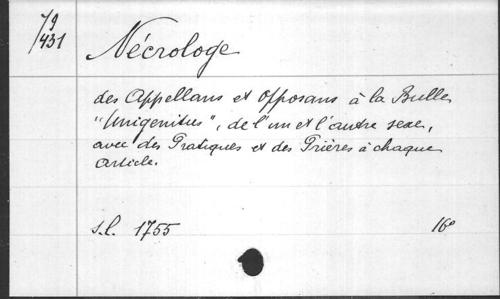 79
/431
Nécrologe
des Appellans et Opposans à la Bulle
"Unigenitus", de l'un et l'autre sexe,
avec des Pratiques et des Prières à chaque
article.
s.l. 1755 16°